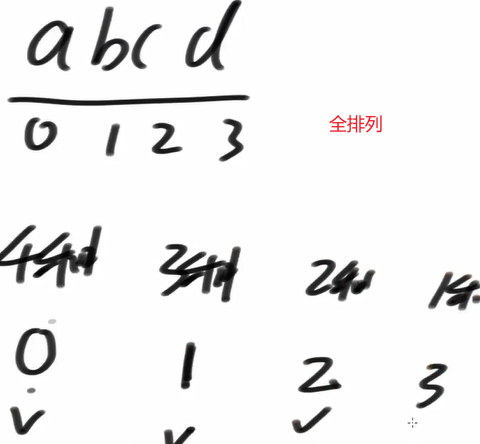 abcd
0 1 2 3
全排列
4种 3种 2种 1种
0 1 2 3